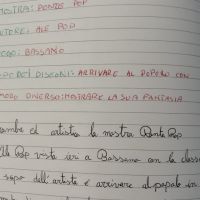 MOSTRA: PONTE POP
AUTORE: ALE POP
LUOGO: BASSANO
SCOPO DEI DISEGNI: ARRIVARE AL POPOLO CON
MODO DIVERSO: MOSTRARE LA SUA FANTASIA
artista la mostra Ponte Pop
Pop vista ieri a Bassano con la classe
scopo dell'artista è arrivare al popolo in